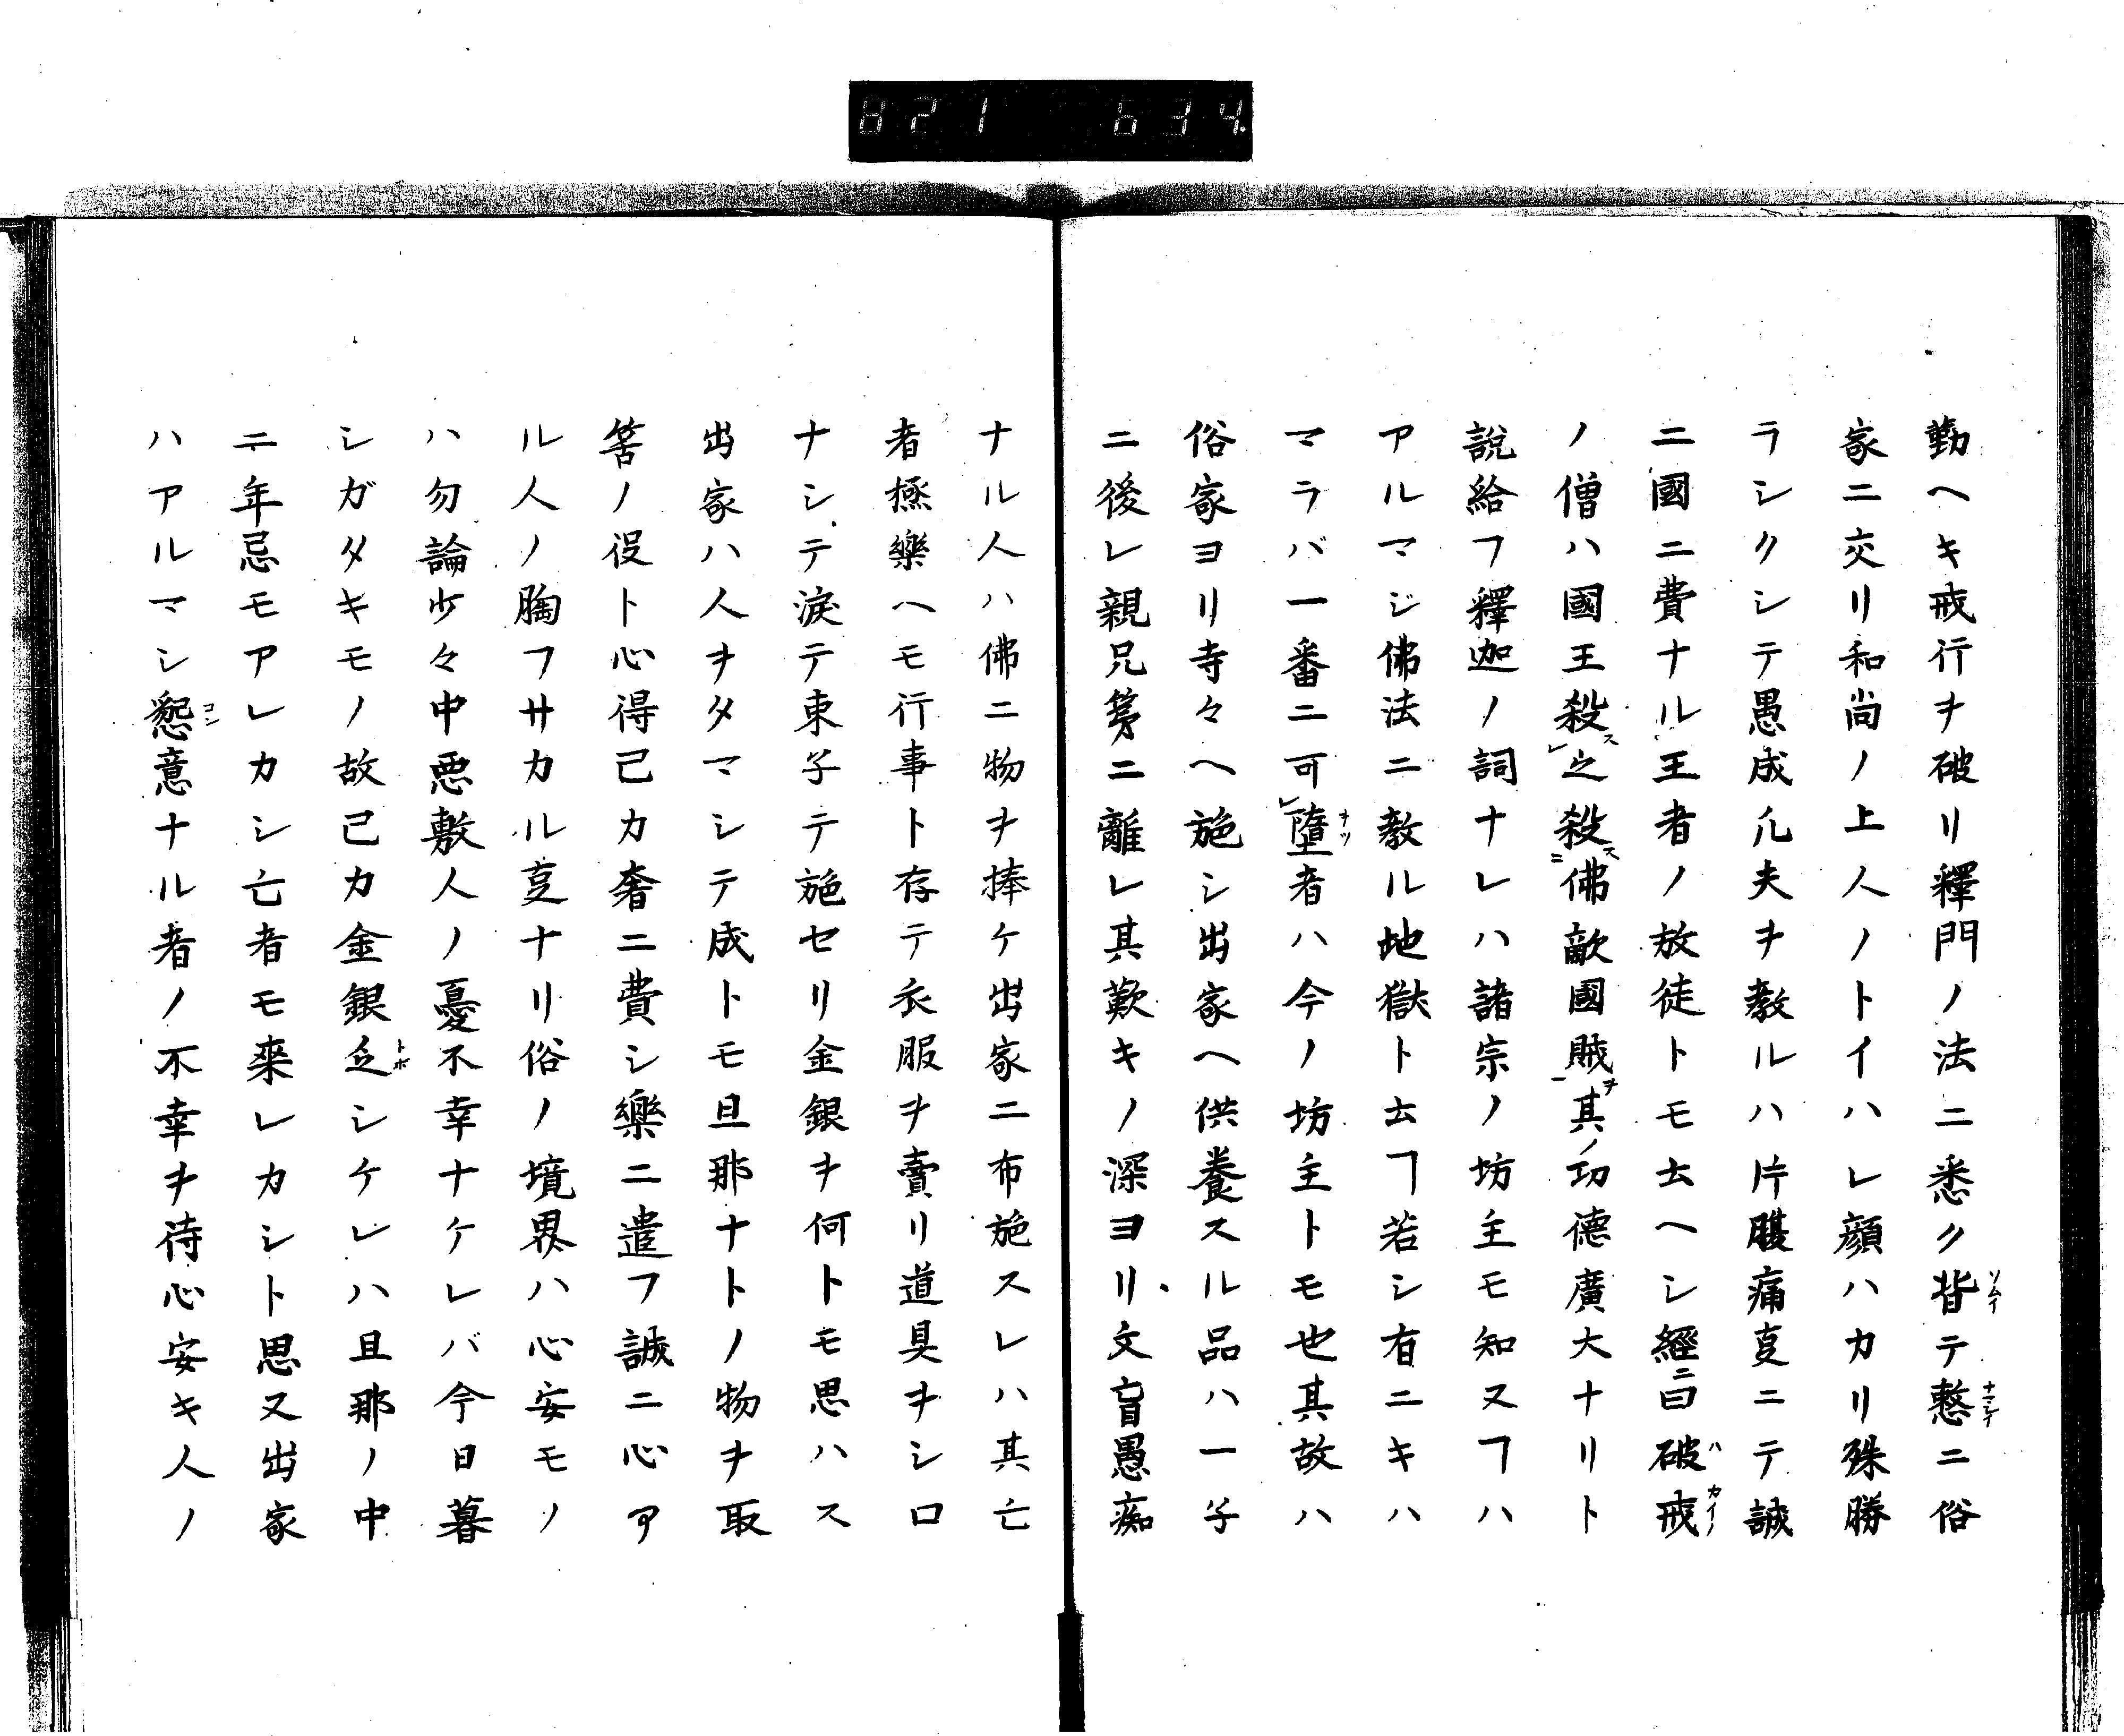 821 634.
勤ヘキ戒行ヲ破リ釋門ノ法ニ悉ク背テ憖ニ俗
家ニ交リ和尚ノ上人ノトイハレ顔ハカリ殊勝
ラシクシテ愚成凡夫ヲ教ルハ片腹痛㕝ニテ誠
ニ國ニ費ナル王者ノ放徒トモ云ヘシ經ニ曰破戒
ノ僧ハ國王殺之殺佛敵國賊其ノ功德廣大ナリト
說給フ釋迦ノ詞ナレハ諸宗ノ坊主モ知ヌヿハ
アルマジ佛法ニ教ル地獄ト云ヿ若シ有ニキハ
マラバ一番ニ可墮者ハ今ノ坊主トモ也其故ハ
俗家ヨリ寺々ヘ施シ出家ヘ供養スル品ハ一子
ニ後レ親兄弟ニ離レ其歎キノ深ヨリ文盲愚痴
ナル人ハ佛ニ物ヲ捧ケ出家ニ布施スレハ其亡
者極樂ヘモ行事ト存テ衣服ヲ賣リ道具ヲシロ
ナシテ淚テ束子テ施セリ金銀ヲ何トモ思ハス
出家ハ人ヲタマシテ成トモ旦那ナトノ物ヲ取
筈ノ役ト心得己カ奢ニ費シ樂ニ遣フ誠ニ心ア
ル人ノ胸フサカル㕝ナリ俗ノ境界ハ心安モノ
ハ勿論少々中悪敷人ノ憂不幸ナケレバ今日暮
シガタキモノ故己カ金銀乏シケレハ旦那ノ中
ニ年忌モアレカシ亡者モ來レカシト思又出家
ハアルマシ懇意ナル者ノ不幸ヲ待心安キ人ノ